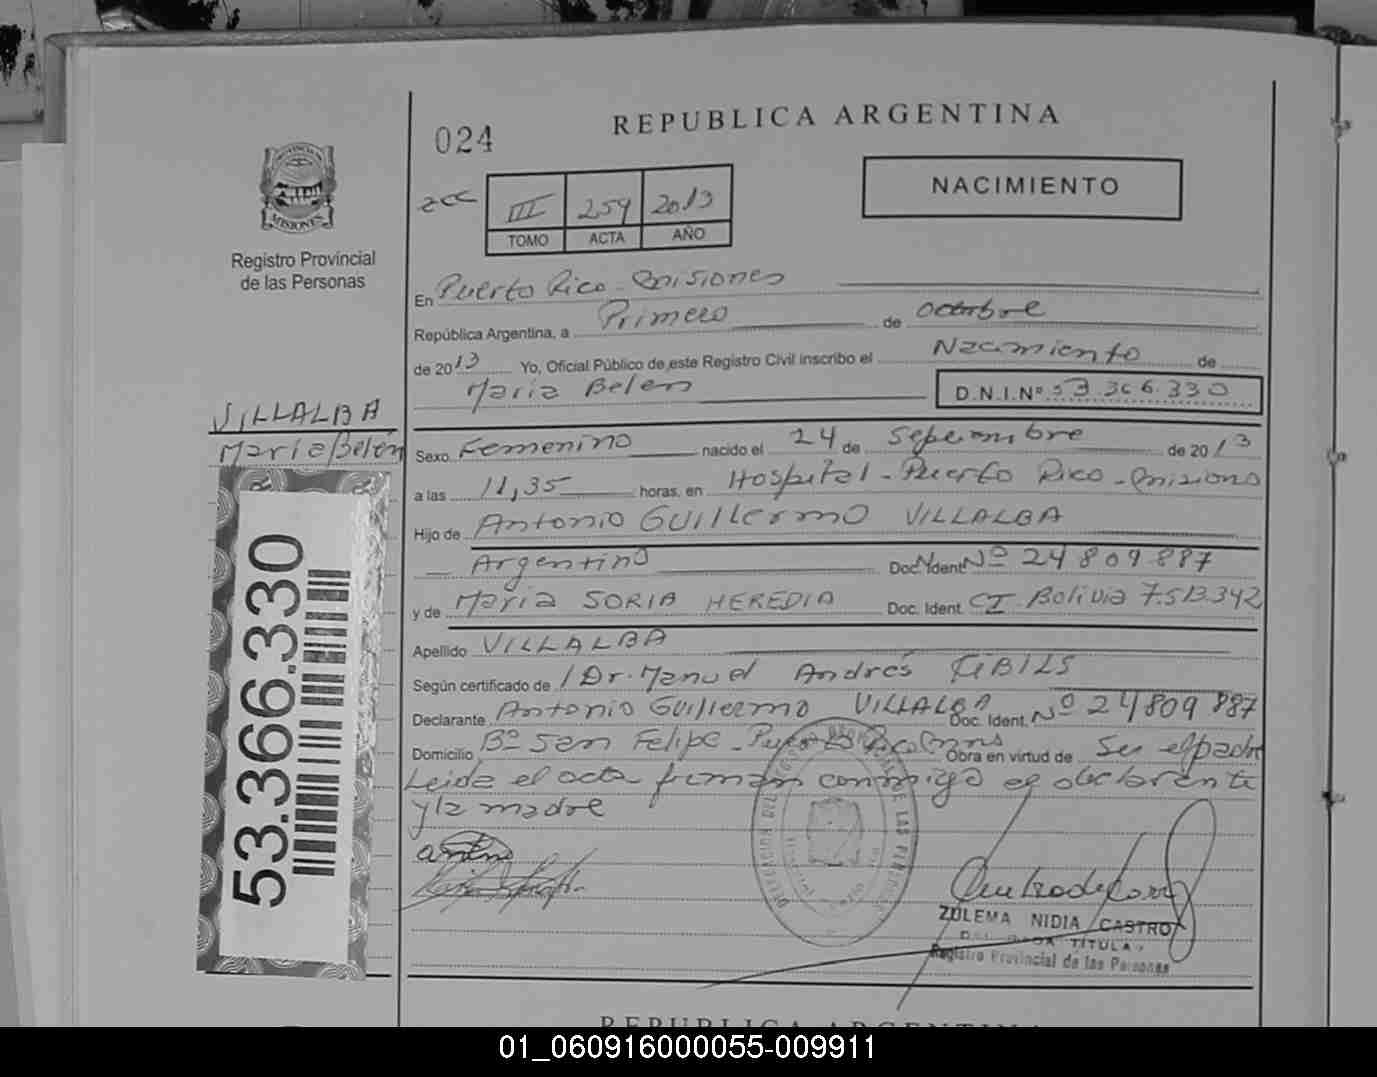 024
REPUBLICA ARGENTINA
NACIMIENTO
III 259 2013
TOMO ACTA AÑO
PROVINCIA
MISIONES
Registro Provincial
de las Personas
En Puerto Rico - Misiones
República Argentina, a Primero de octubre
de 2013 Yo, Oficial Público de este Registro Civil inscribo el Nacimiento de
Maria Belen D.N.I.Nº 53.366.330
VILLALBA
Maria Belén
Sexo Femenino nacido el 24 de Sepiembre de 2013
a las 11,35 horas, en Hospital - Puerto Rico - Misiones
Hijo de Antonio Guillermo VILLALBA
Argentino Doc. Ident. Nº 24809887
y de Maria SORIA HEREDIA Doc. Ident. CI. Bolivia 7.513.342
Apellido VILLALBA
Según certificado de Dr. Manuel Andrés
Declarante Antonio Guillermo VILLALBA Doc. Ident. Nº 24809887
Domicilio Bº San Felipe - Puerto Rico Mns Obra en virtud de Ser el padre
Leida el acta firman conmigo el declarante
y la madre
53.366.330
ZULEMA NIDIA CASTRO
DELEGADA TITULAR
Registro Provincial de las Personas
REPUBLICA ARGENTINA
01_060916000055-009911